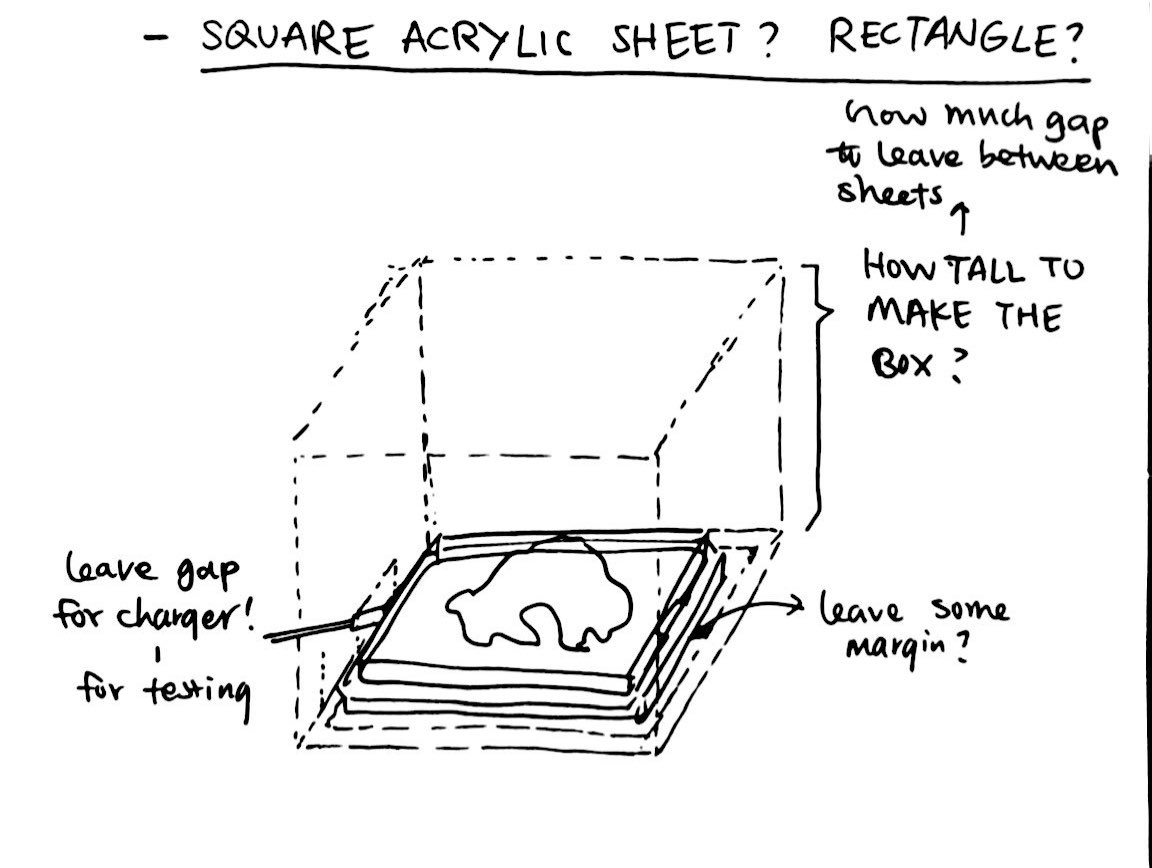 - SQUARE ACRYLIC SHEET? RECTANGLE?
how much gap
to leave between
sheets
HOW TALL TO
MAKE THE
BOX?
leave gap
for charger!
for testing
leave some
margin?